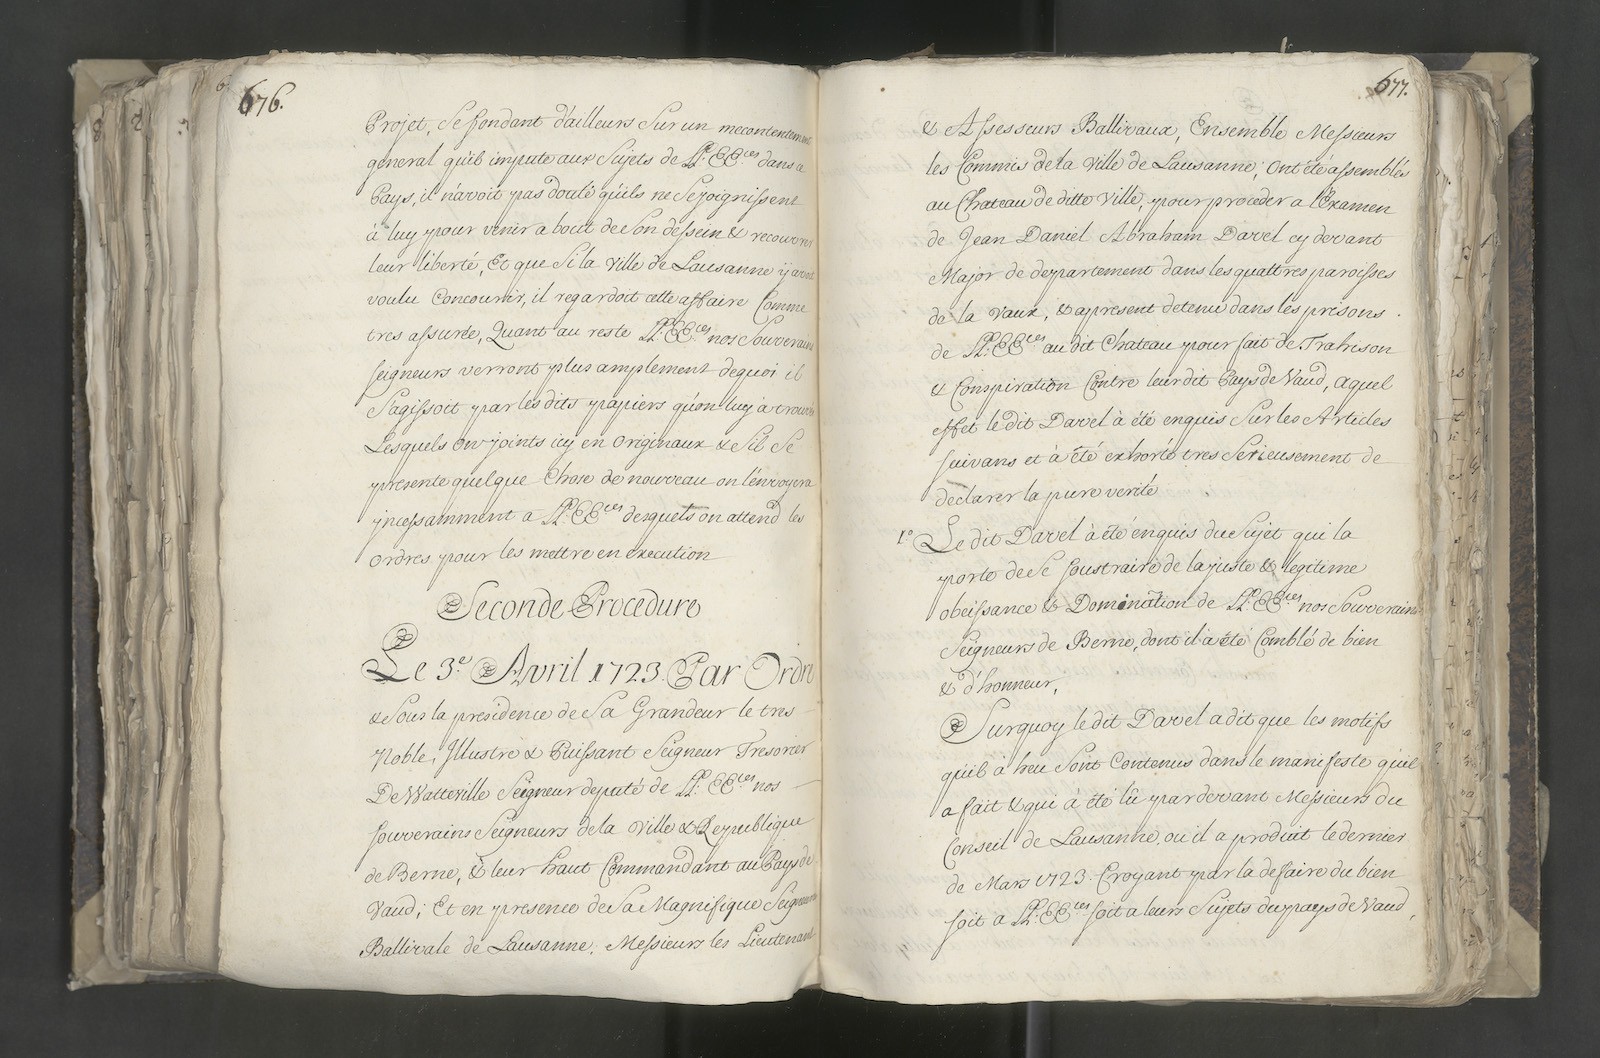 676.
Projet, Se fondant d'ailleurs Sur un mecontentement
general qu'il impute aux Sujets de LL: EE:ces dans ce
Pays, il n'avoit pas douté qu'ils ne Se joignissent
à luy pour venir a bout de Son dessein & recouvrer
leur liberté, Et que Si la Ville de Lausanne ij avoit
voulu Concourrir, il regardoit cette affaire Comme
tres assurée, Quant au reste LL: EE:ces nos Souverains
seigneurs verront plus amplement dequoi il
S'agissoit par les dits papiers qu'on luy a trouvés
Lesquels on joints icy en Originaux & Sil Se
presente quelque Chose de nouveau on l'envoyera
incessamment a LL: EE:ces desquels on attend les
Ordres pour les mettre en execution
Seconde Procedure
Le 3.e Avril 1723. Par Ordre
& Sous la presidence de Sa Grandeur le tres
Noble, Illustre & Puissant Seigneur Tresorier
De Watteville Seigneur deputé de LL: EE:ces nos
souverains Seigneurs de la Ville & Republique
de Berne, & leur haut Commandant au Pays de
Vaud; Et en presence de Sa Magnifique Seigneurie
Ballivale de Lausanne, Messieurs les Lieutenant
677.
& Assesseurs Ballivaux, Ensemble Messieurs
les Commis de la Ville de Lausanne; Ont été assemblés
au Chateau de ditte Ville, pour proceder a l'Examen
de Jean Daniel Abraham Davel cy devant
Major de departement dans les quattres paroisses
de la Vaux, & apresent detenu dans les prisons
de LL: EE:ces au dit Chateau pour fait de Trahison
& Conspiration Contre leur dit Pays de Vaud, aquel
effet le dit Davel à été enquis Sur les Articles
suivans et à été exhorté tres Serieusement de
declarer la pure verité
1.o Le dit Davel à été enquis du Sujet qui la
porté de Se soustraire de la juste & legitime
obeissance & Domination de LL: EE:ces nos Souverains
Seigneurs de Berne, dont il a été Comblé de bien
& d'honneur,
Surquoy le dit Davel a dit que les motifs
qu'il à heu Sont Contenus dans le manifeste qu'il
a fait & qui à été lû par devant Messieurs du
Conseil de Lausanne, ou il a produit le dernier
de Mars 1723. Croyant par la de faire du bien
soit a LL: EE:ces soit a leurs Sujets du pays de Vaud,